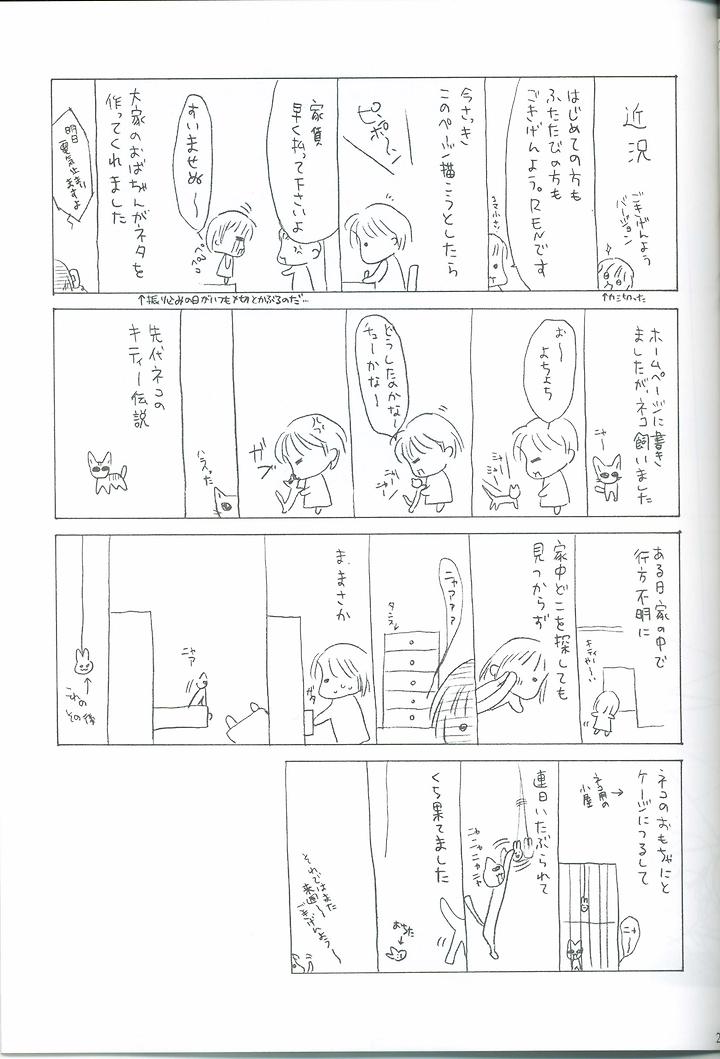 近況
ごきげんよう
バージョン
↑カミ切った
はじめての方も
ふたたびの方も
ごきげんよう。RENです
今さっき
このページ描こうとしたら
ピンポーン
家賃
早く払って下さいよ
すいませぬ～
ペコペコ
↑振り込みの日がいつも〆切とかぶるのだ…
大家のおばちゃんがネタを
作ってくれました
明日
電気止まい
ますよ
ホームページに書き
ましたが、ネコ飼いました
ニャー
お～
よちよち
ニャー
ニャー
どうしたのかなー
チューかなー
ニャー
ニャー
ガブ
ハラへった
先代ネコの
キティー伝説
ある日家の中で
行方不明に
キティやーい
家中どこを探しても
見つからず
ニャアアア
タンス
ま、まさか
ガタ
ニャア
これの
その後
ネコのおもちゃにと
ケージにつるして
ネコ用の
小屋
→
ニャー
連日いたぶられて
ニャ
ニャニャ
ニャニャ
くち果てました
おちた
それではまた
来週～
ごきげんよう～
2